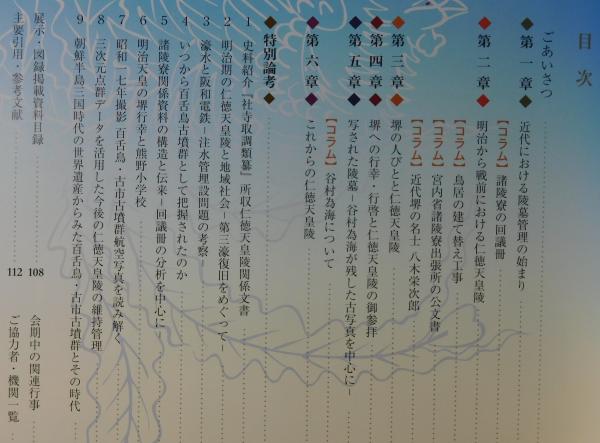 目次
ごあいさつ
第一章 近代における陵墓管理の始まり
【コラム】諸陵寮の回議冊
第二章 明治から戦前における仁徳天皇陵
【コラム】鳥居の建て替え工事
【コラム】宮内省諸陵寮出張所の公文書
【コラム】近代堺の名士 八木栄次郎
第三章 堺の人びとと仁徳天皇陵
第四章 堺への行幸・行啓と仁徳天皇陵の御参拝
第五章 写された陵墓−谷村為海が残した古写真を中心に−
【コラム】谷村為海について
第六章 これからの仁徳天皇陵
特別論考
1 史料紹介『社寺収調類纂』所収仁徳天皇陵関係文書
2 明治期の仁徳天皇陵と地域社会−第三濠復旧をめぐって−
3 濠水と阪和電鉄−注水管埋設問題の考察
4 いつから百舌鳥古墳群として把握されたのか
5 諸陵寮関係資料の構造と伝来−回議冊の分析を中心に−
6 明治天皇の堺行幸と熊野小学校
7 昭和一七年撮影 百舌鳥・古市古墳群航空写真を読み解く
8 三次元点群データを活用した今後の仁徳天皇陵の維持管理
9 朝鮮半島三国時代の世界遺産からみた百舌鳥・古市古墳群とその時代
展示・図録掲載資料目録 108
主要引用・参考文献 112
会期中の関連行事
ご協力者・機関一覧